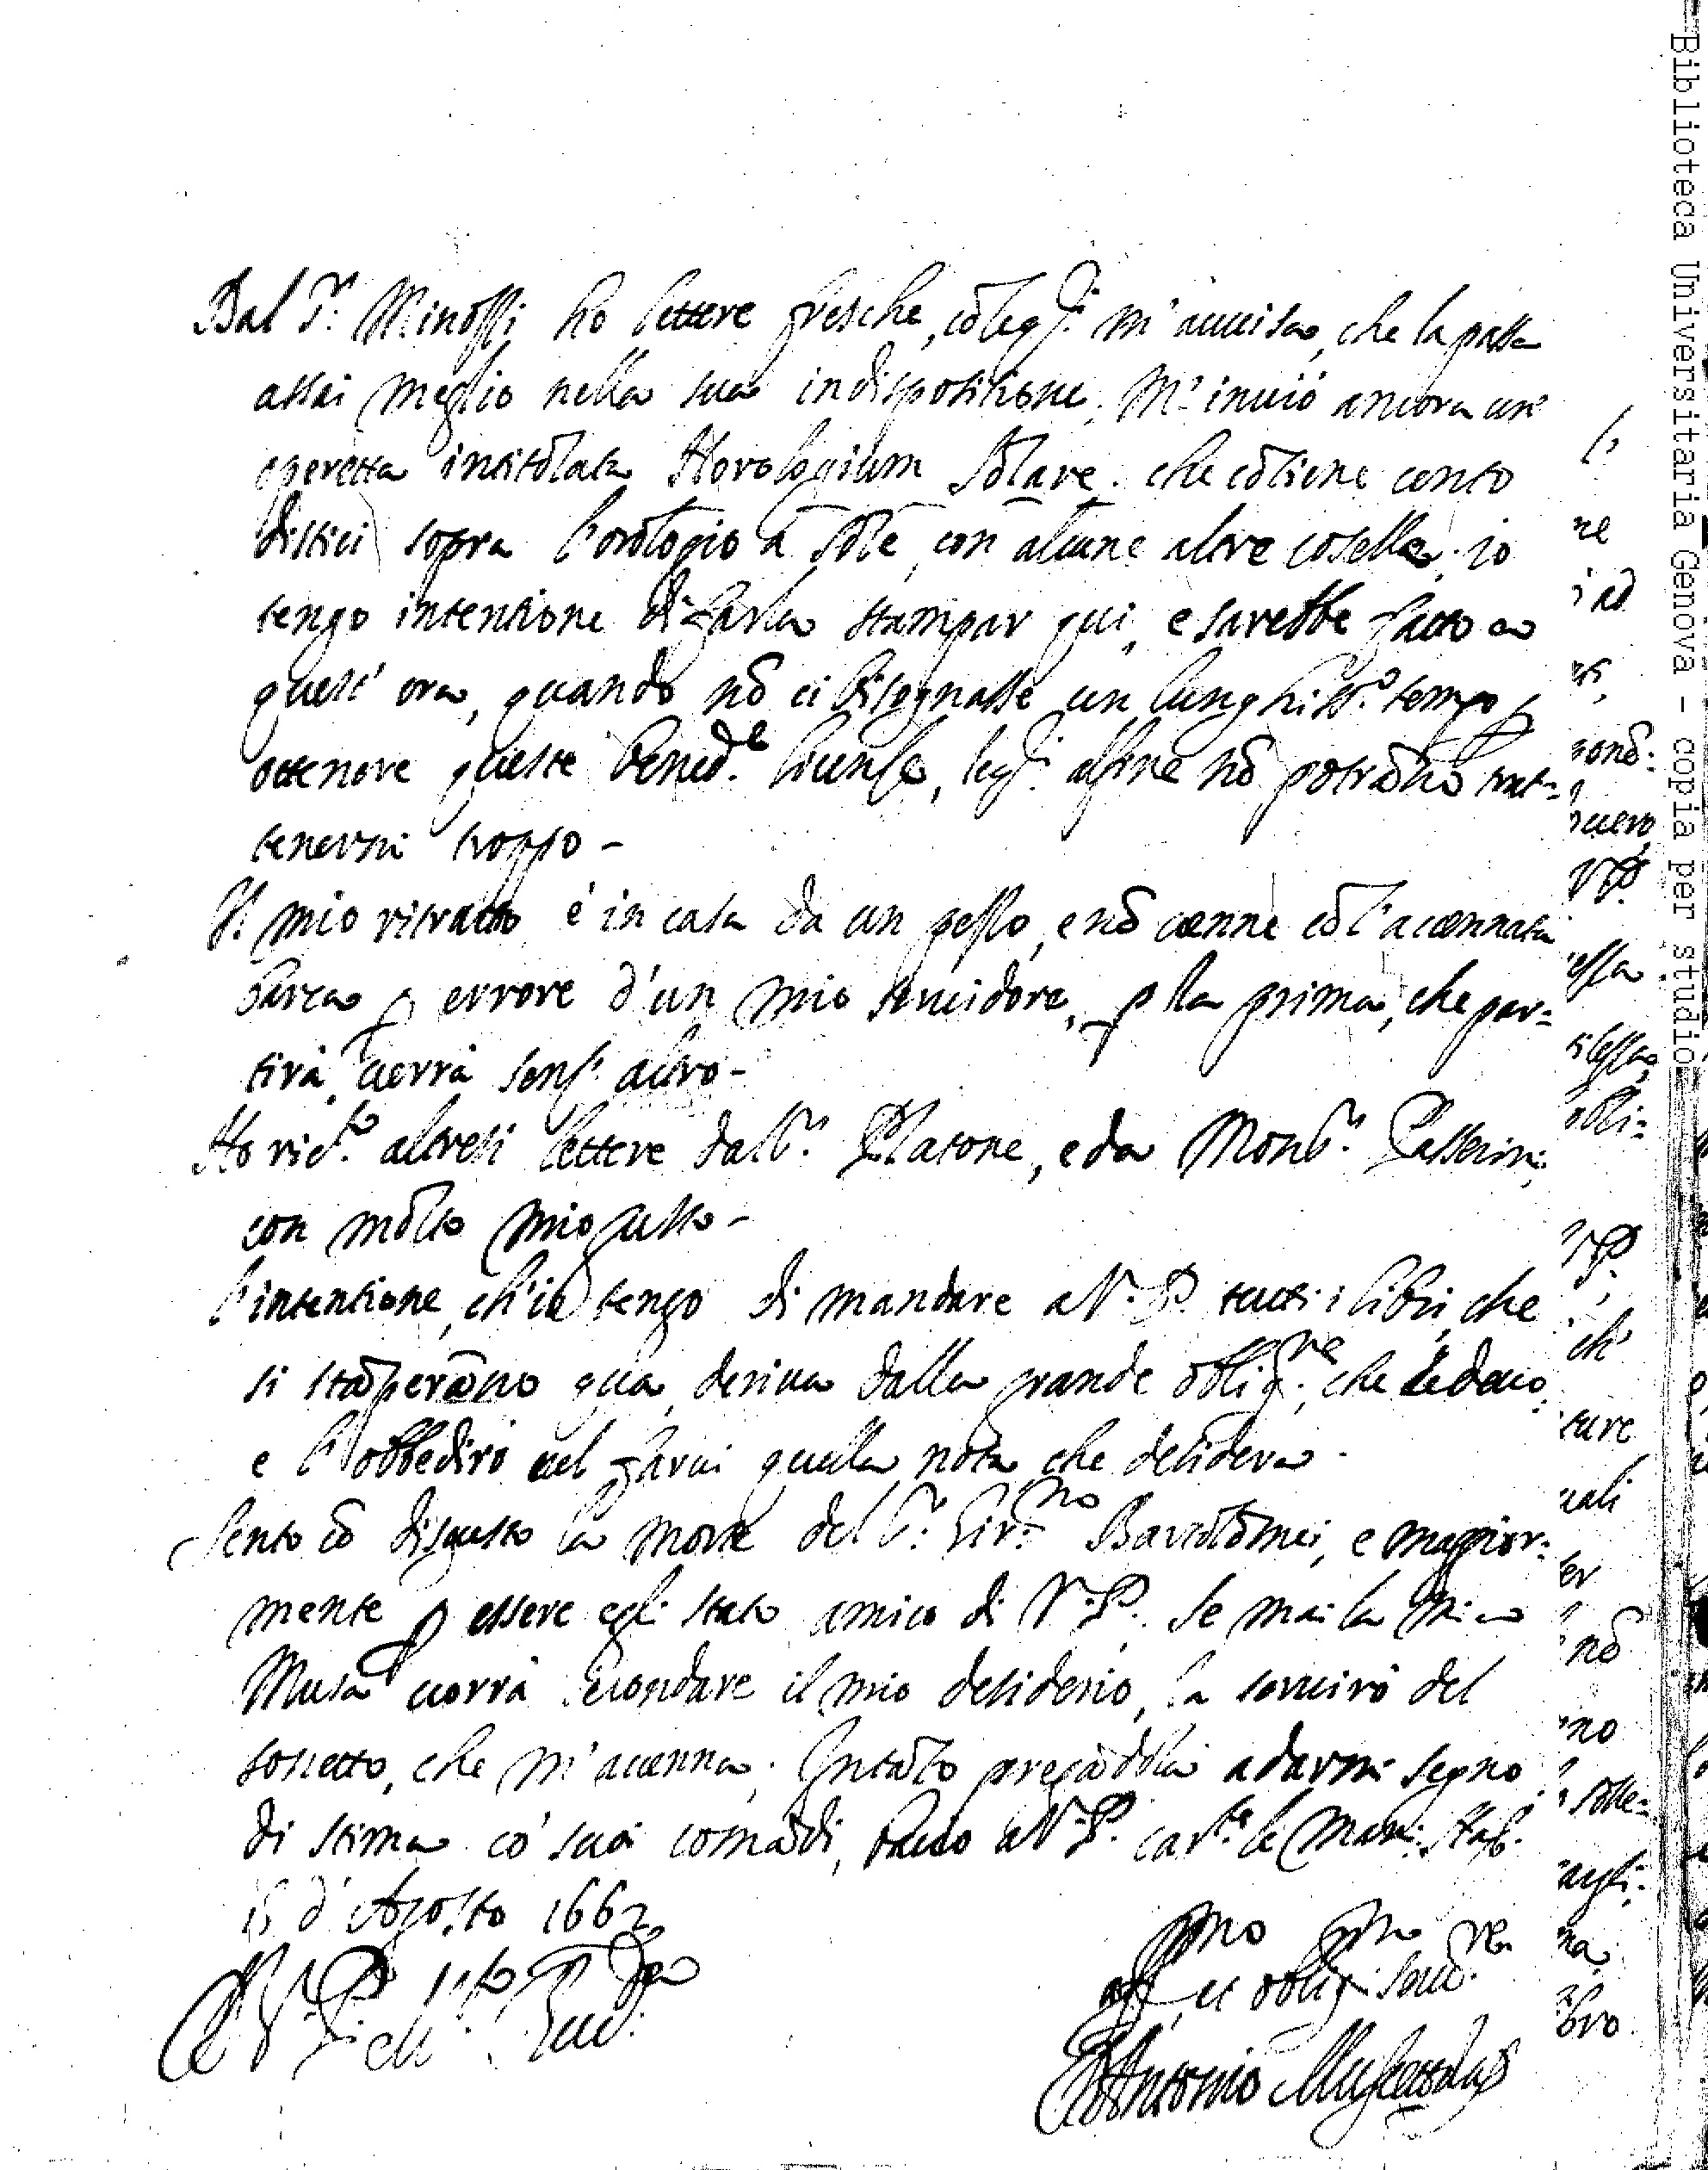 Dal S.r Minossi ho lettere fresche, cō leq.li m'auuisa, che la passa
assai meglio nella sua indispositione. M'inuiò ancora un'
operetta intitolata Horologium Solare. che cōtiene cento
distici sopra l'orologio à Sole, con alcune altre coselle. io
tengo intentione di farla stampar qui, e sarebbe fatto a
quest'ora, quando nō ci bisognasse un lunghiss.o tempo p
ottenere queste bened.e licenze, leq.li alfine nō potrāno trat=
tenermi troppo-
Il mio ritratto è in casa da un pezzo, e nō uenne cō l'accennata
barca p errore d'un mio seruidore, p la prima, che par=
tirà uerrà senz'altro-
Ho ric.to altresi lettere dal S.r Platone, e da Mons.r Passerini
con molto mio gusto-
L'intentione, ch'io tengo di mandare a V. P. tutti i libri, che
si stāperāno qua, deriua dalla grande oblig.ne che le deuo,
e l'obbedirò nel farui quella nota che desidera.
Sento cō disgusto la morte del S.r Gir.mo Bartolomei, e maggior=
mente p essere egli stato amico di V. P. Se mai la mia
Musa uorrà secondare il mio desiderio, la seruirò del
sonetto, che m'accenna. Intāto pregādola a darmi segno
di stima co' suoi comādi, bacio a V. P. car.te le mani. Nap.
15 d'Agosto 1662
Di V. P.
aff. et oblig. Seru.re
Antonio Muscettola
Biblioteca Universitaria Genova - copia per studio